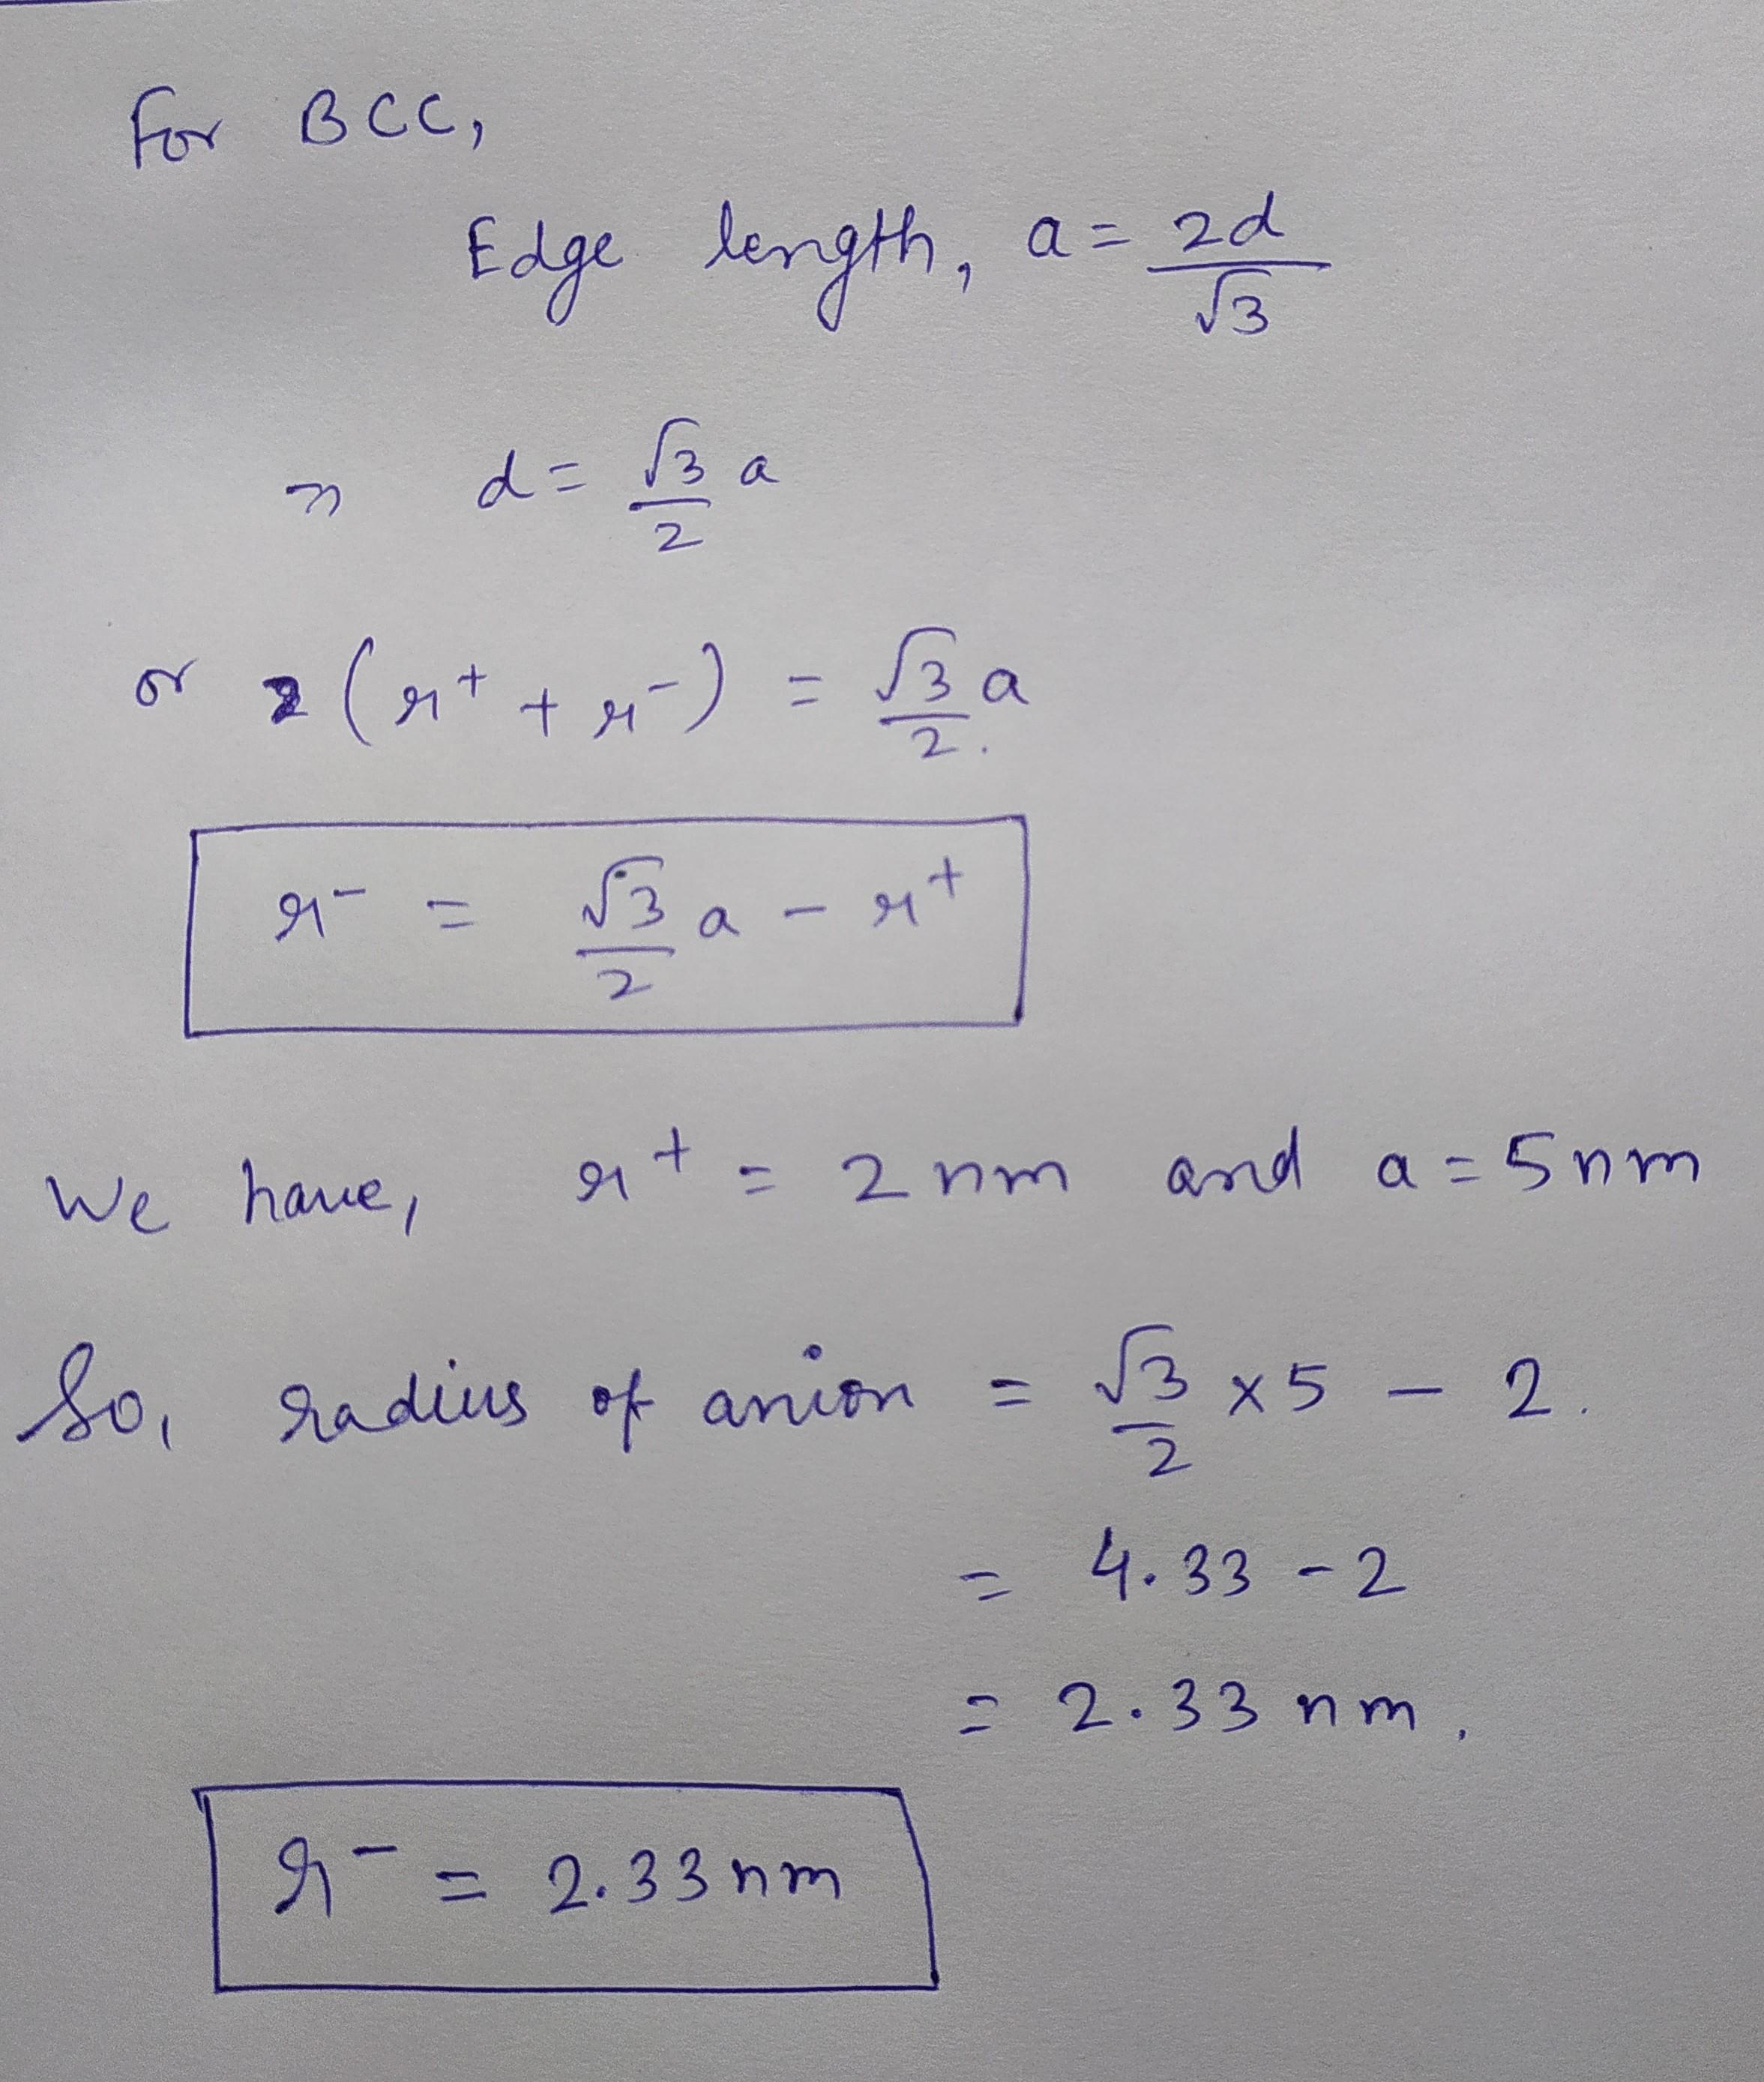 For BCC,
Edge length, a = 2d/√3
⇒ d = √3/2 a
or 2 (r⁺ + r⁻) = √3/2 a
r⁻ = √3/2 a - r⁺
We have, r⁺ = 2 nm and a = 5nm
So, radius of anion = √3/2 x 5 - 2.
= 4.33 - 2
= 2.33 nm.
r⁻ = 2.33 nm